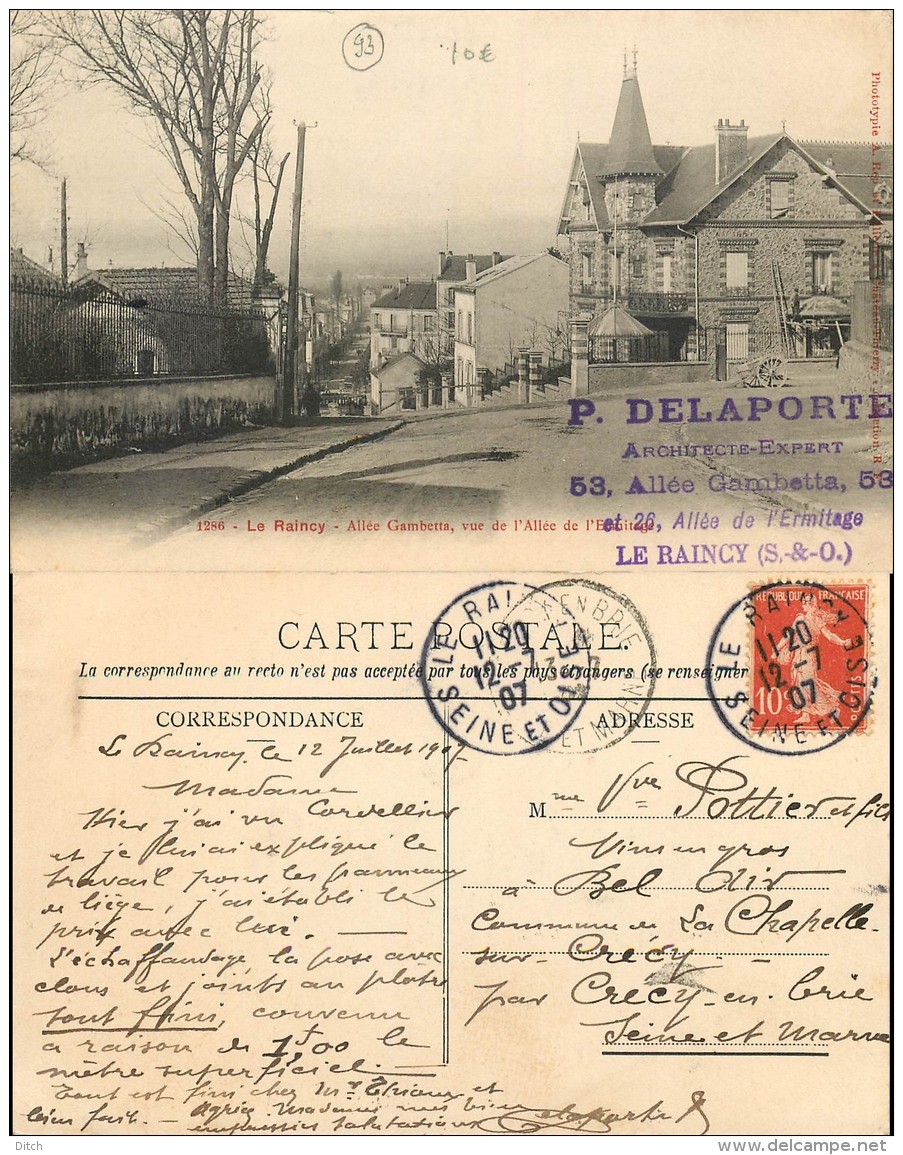 93
10€
Phototypie A. Rep
P. DELAPORTE
ARCHITECTE-EXPERT
53, Allée Gambetta, 53
et 26, Allée de l'Ermitage
LE RAINCY (S.-&-O.)
1286 - Le Raincy - Allée Gambetta, vue de l'Allée de l'Ermitage
CARTE POSTALE.
La correspondance au recto n'est pas acceptée par tous les pays étrangers (se renseigner
LE RAINCY
11 20
12 - 7
07
SEINE ET OISE
EN BRIE
ET MARNE
REPUBLIQUE FRANÇAISE
10
LE RAINCY
11 20
12 - 7
07
SEINE ET OISE
CORRESPONDANCE
Le Raincy, le 12 Juillet 1907
Madame
Hier j'ai vu Cordellier
et je lui ai expliqué le
travail pour les panneaux
de liège, j'ai établi le
prix avec lui. —
L'échaffaudage la pose avec
clous et joints au plâtre
tout fini, convenu
a raison de 1f00 le
mètre superficiel. —
Tout est fini chez Mr et
bien fait. — Agréez Madame mes bien
empressées salutations
Delaporte
ADRESSE
Mme Vve Pottier et fils
Vins en gros
à Bel Air
Commune de La Chapelle-
sur-Crécy
par Crécy-en-brie
Seine et Marne
Ditch
www.delcampe.net